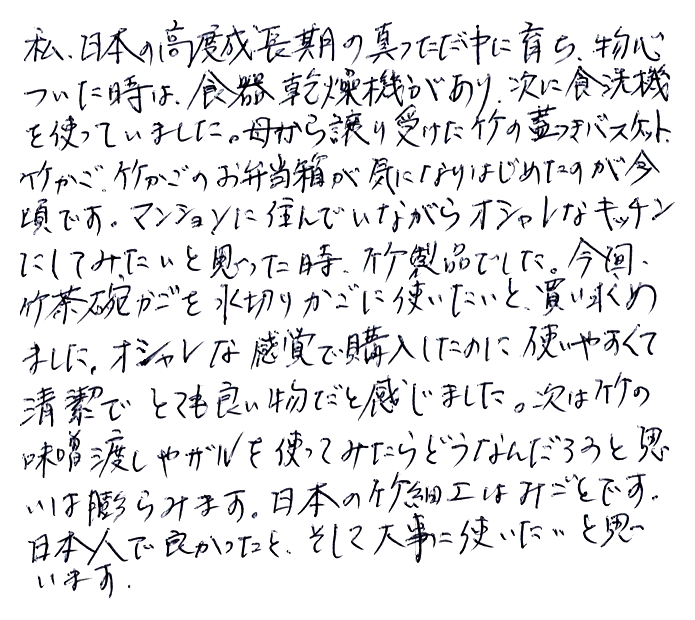 私、日本の高度成長期の真っただ中に育ち、物心
ついた時は、食器乾燥機があり、次に食洗機
を使っていました。母から譲り受けた竹の蓋つきバスケット、
竹かご、竹かごのお弁当箱が気になりはじめたのが今
頃です。マンションに住んでいながらオシャレなキッチン
にしてみたいと思った時、竹製品でした。今回、
竹茶碗かごを水切りかごに使いたいと、買い求め
ました。オシャレな感覚で購入したのに使いやすくて
清潔でとても良い物だと感じました。次は竹の
味噌渡しやザルを使ってみたらどうなんだろうと思
いは膨らみます。日本の竹細工はみごとです。
日本人で良かったと、そして大事に使いたいと思
います.